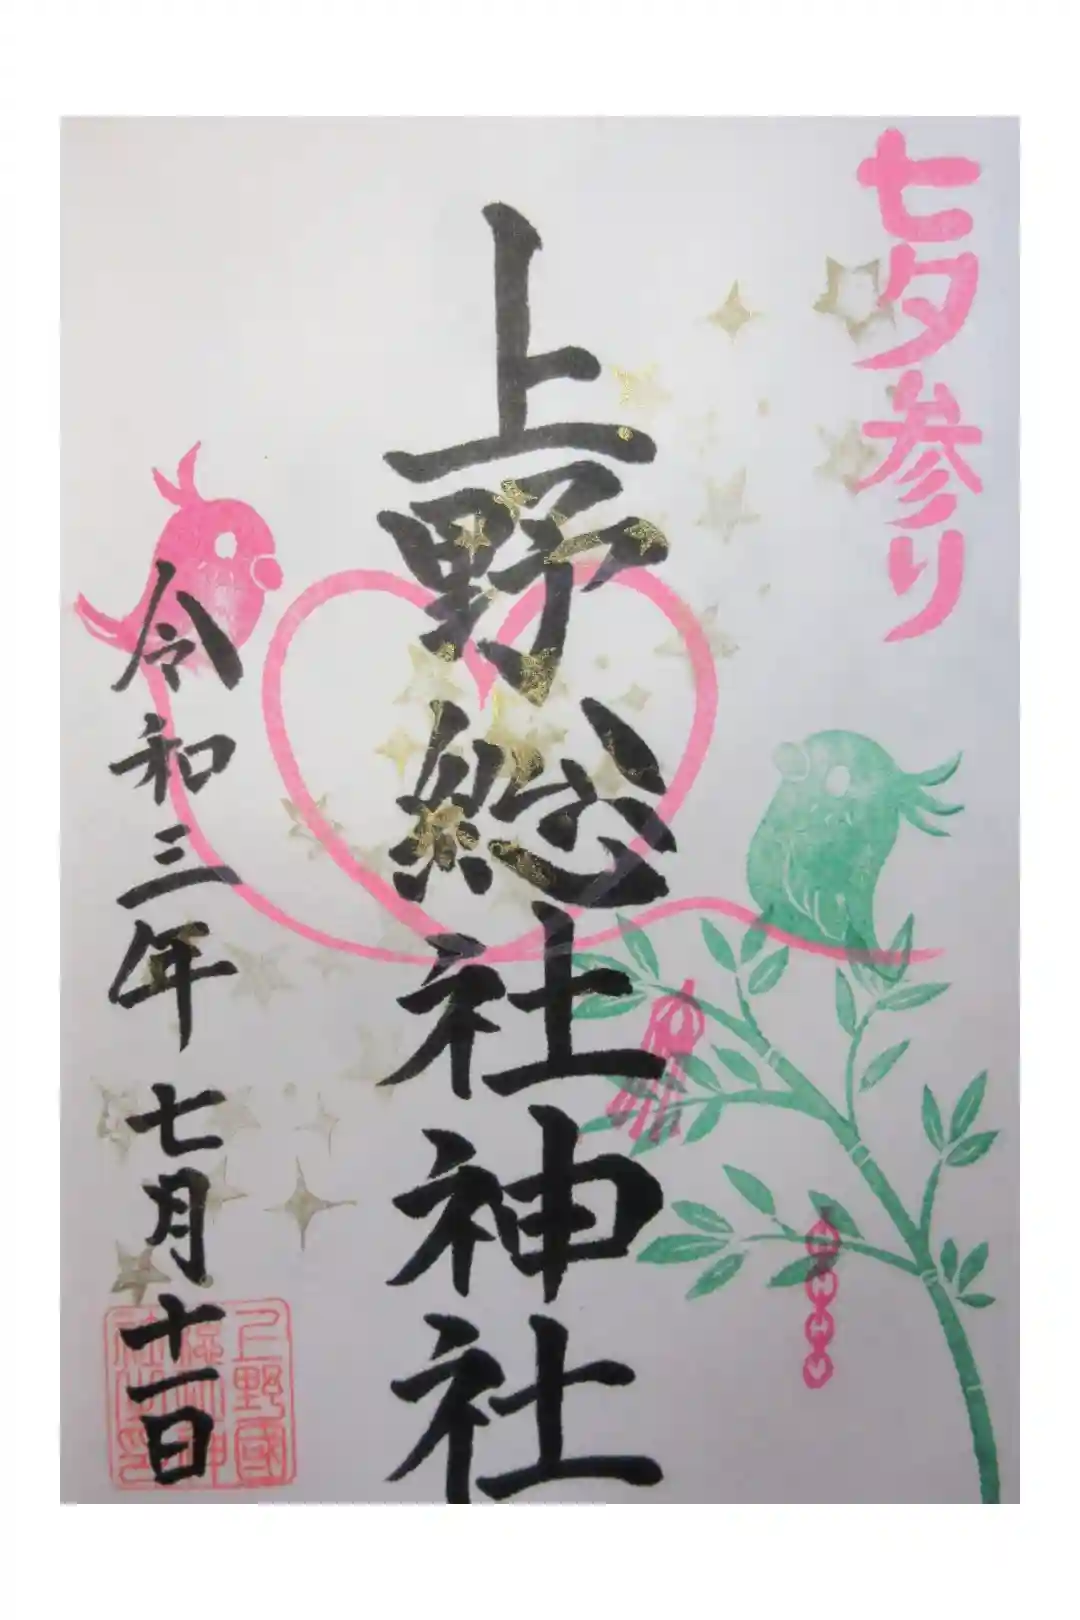 七夕参り
上野総社神社
令和三年七月十一日
上野國